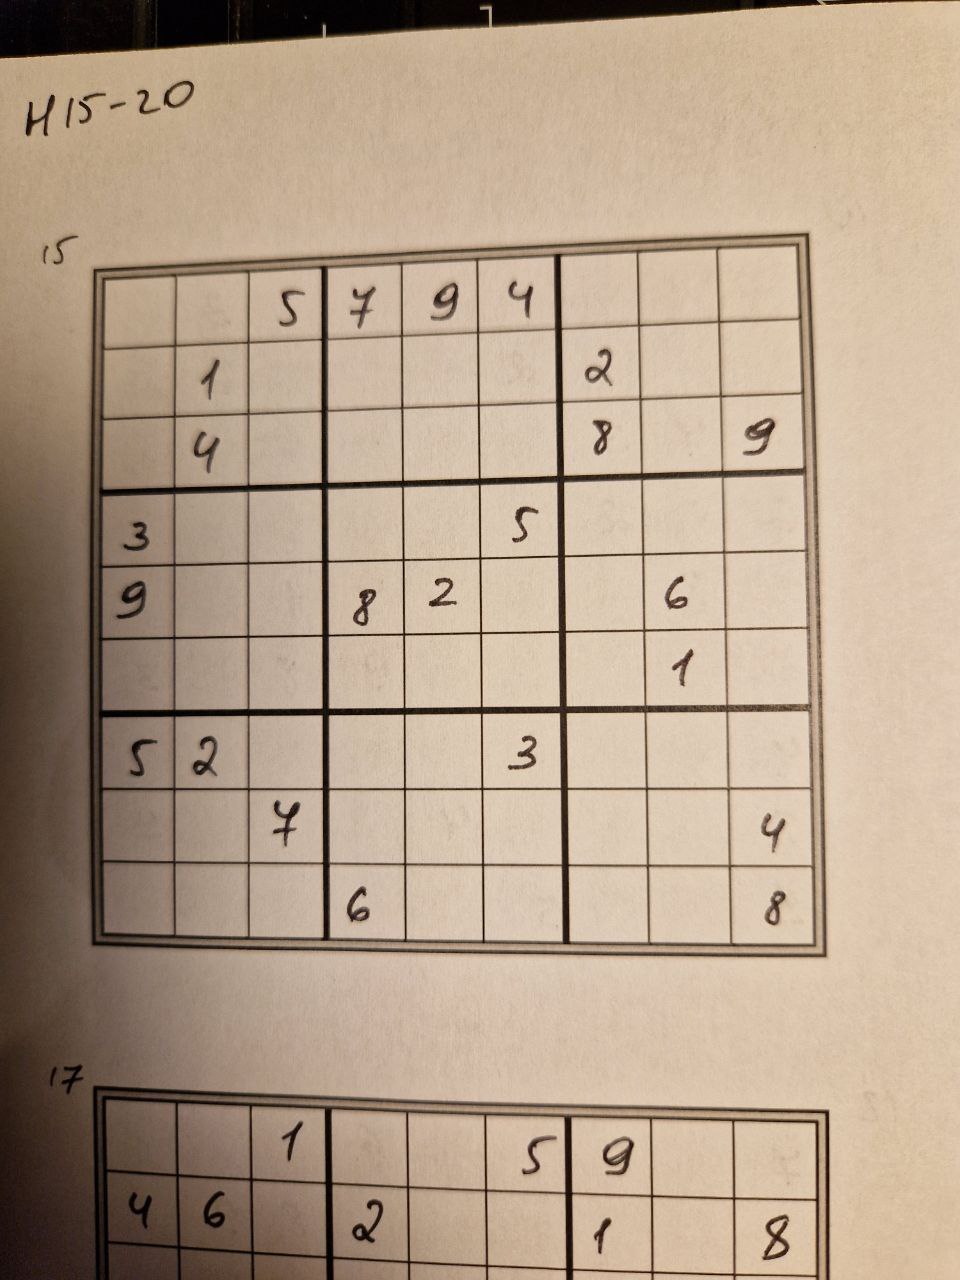 H15-20
15
5 7 9 4
1 2
4 8 9
3 5
9 8 2 6
1
5 2 3
7 4
6 8
17
1 5 9
4 6 2 1 8